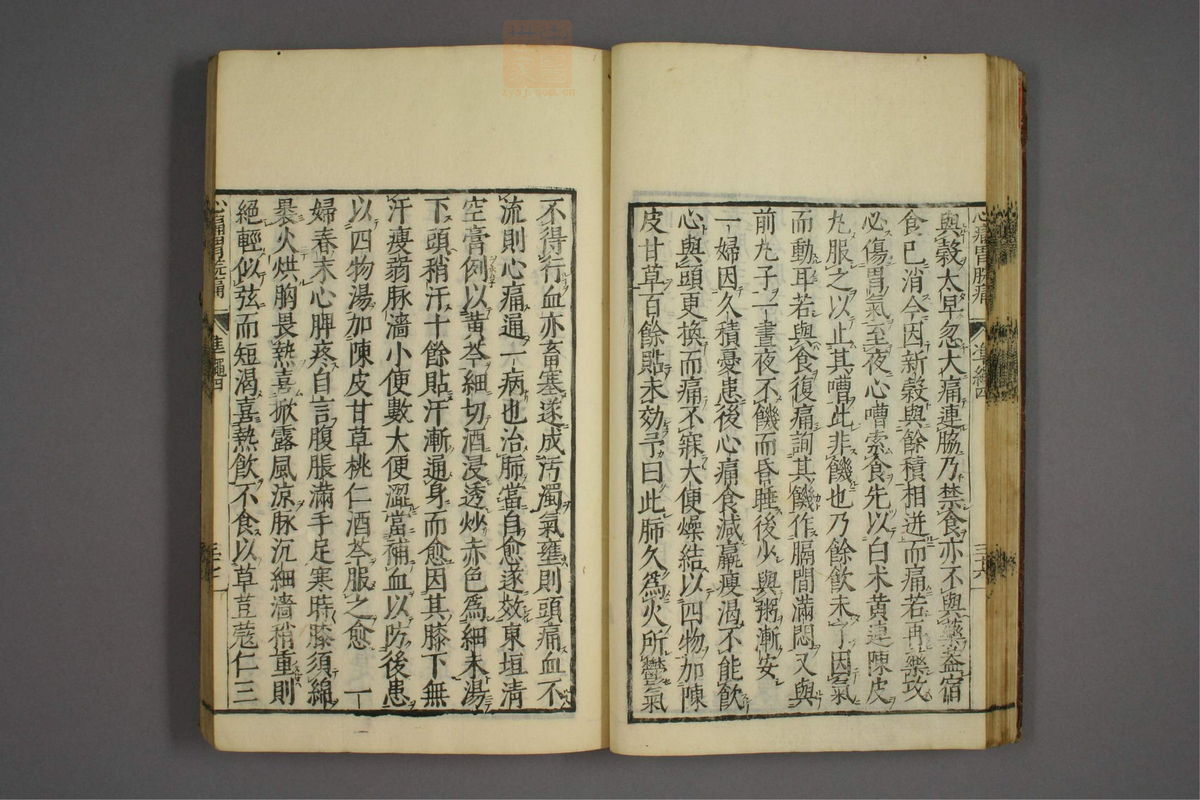 與穀太早忽大痛連脇乃禁食亦不與藥蓋宿
食已消今因新穀與餘積相迸而痛若再藥攻
必傷胃氣至夜心嘈索食先以白朮黄連陳皮
丸服之以止其嘈此非饑也乃餘飲未了因氣
而動耳若與食復痛詢其饑作膈間滿悶又與
前丸子一晝夜不饑而昏睡後少與粥漸安
一婦因久積憂患後心痛食減羸瘦渴不能飲
心與頭更換而痛不寐大便燥結以四物加陳
皮甘草百餘貼未効予曰此肺久爲火所鬱氣
不得行血亦畜塞遂成汚濁氣壅則頭痛血不
流則心痛通一病也治肺當自愈遂效東垣清
空膏例以黄芩細切酒浸透炒赤色爲細末湯
下頭稍汗十餘貼汗漸通身而愈因其膝下無
汗瘦弱脉濇小便數大便澀當補血以防後患
以四物湯加陳皮甘草桃仁酒芩服之愈　一
婦春末心脾疼自言腹脹滿手足寒時膝須綿
暴火烘胸畏熱喜掀露風凉脉沉細濇稍重則
絕輕似弦而短渴喜熱飲不食以草荳蔻仁三
心痛胃脘痛
準繩四